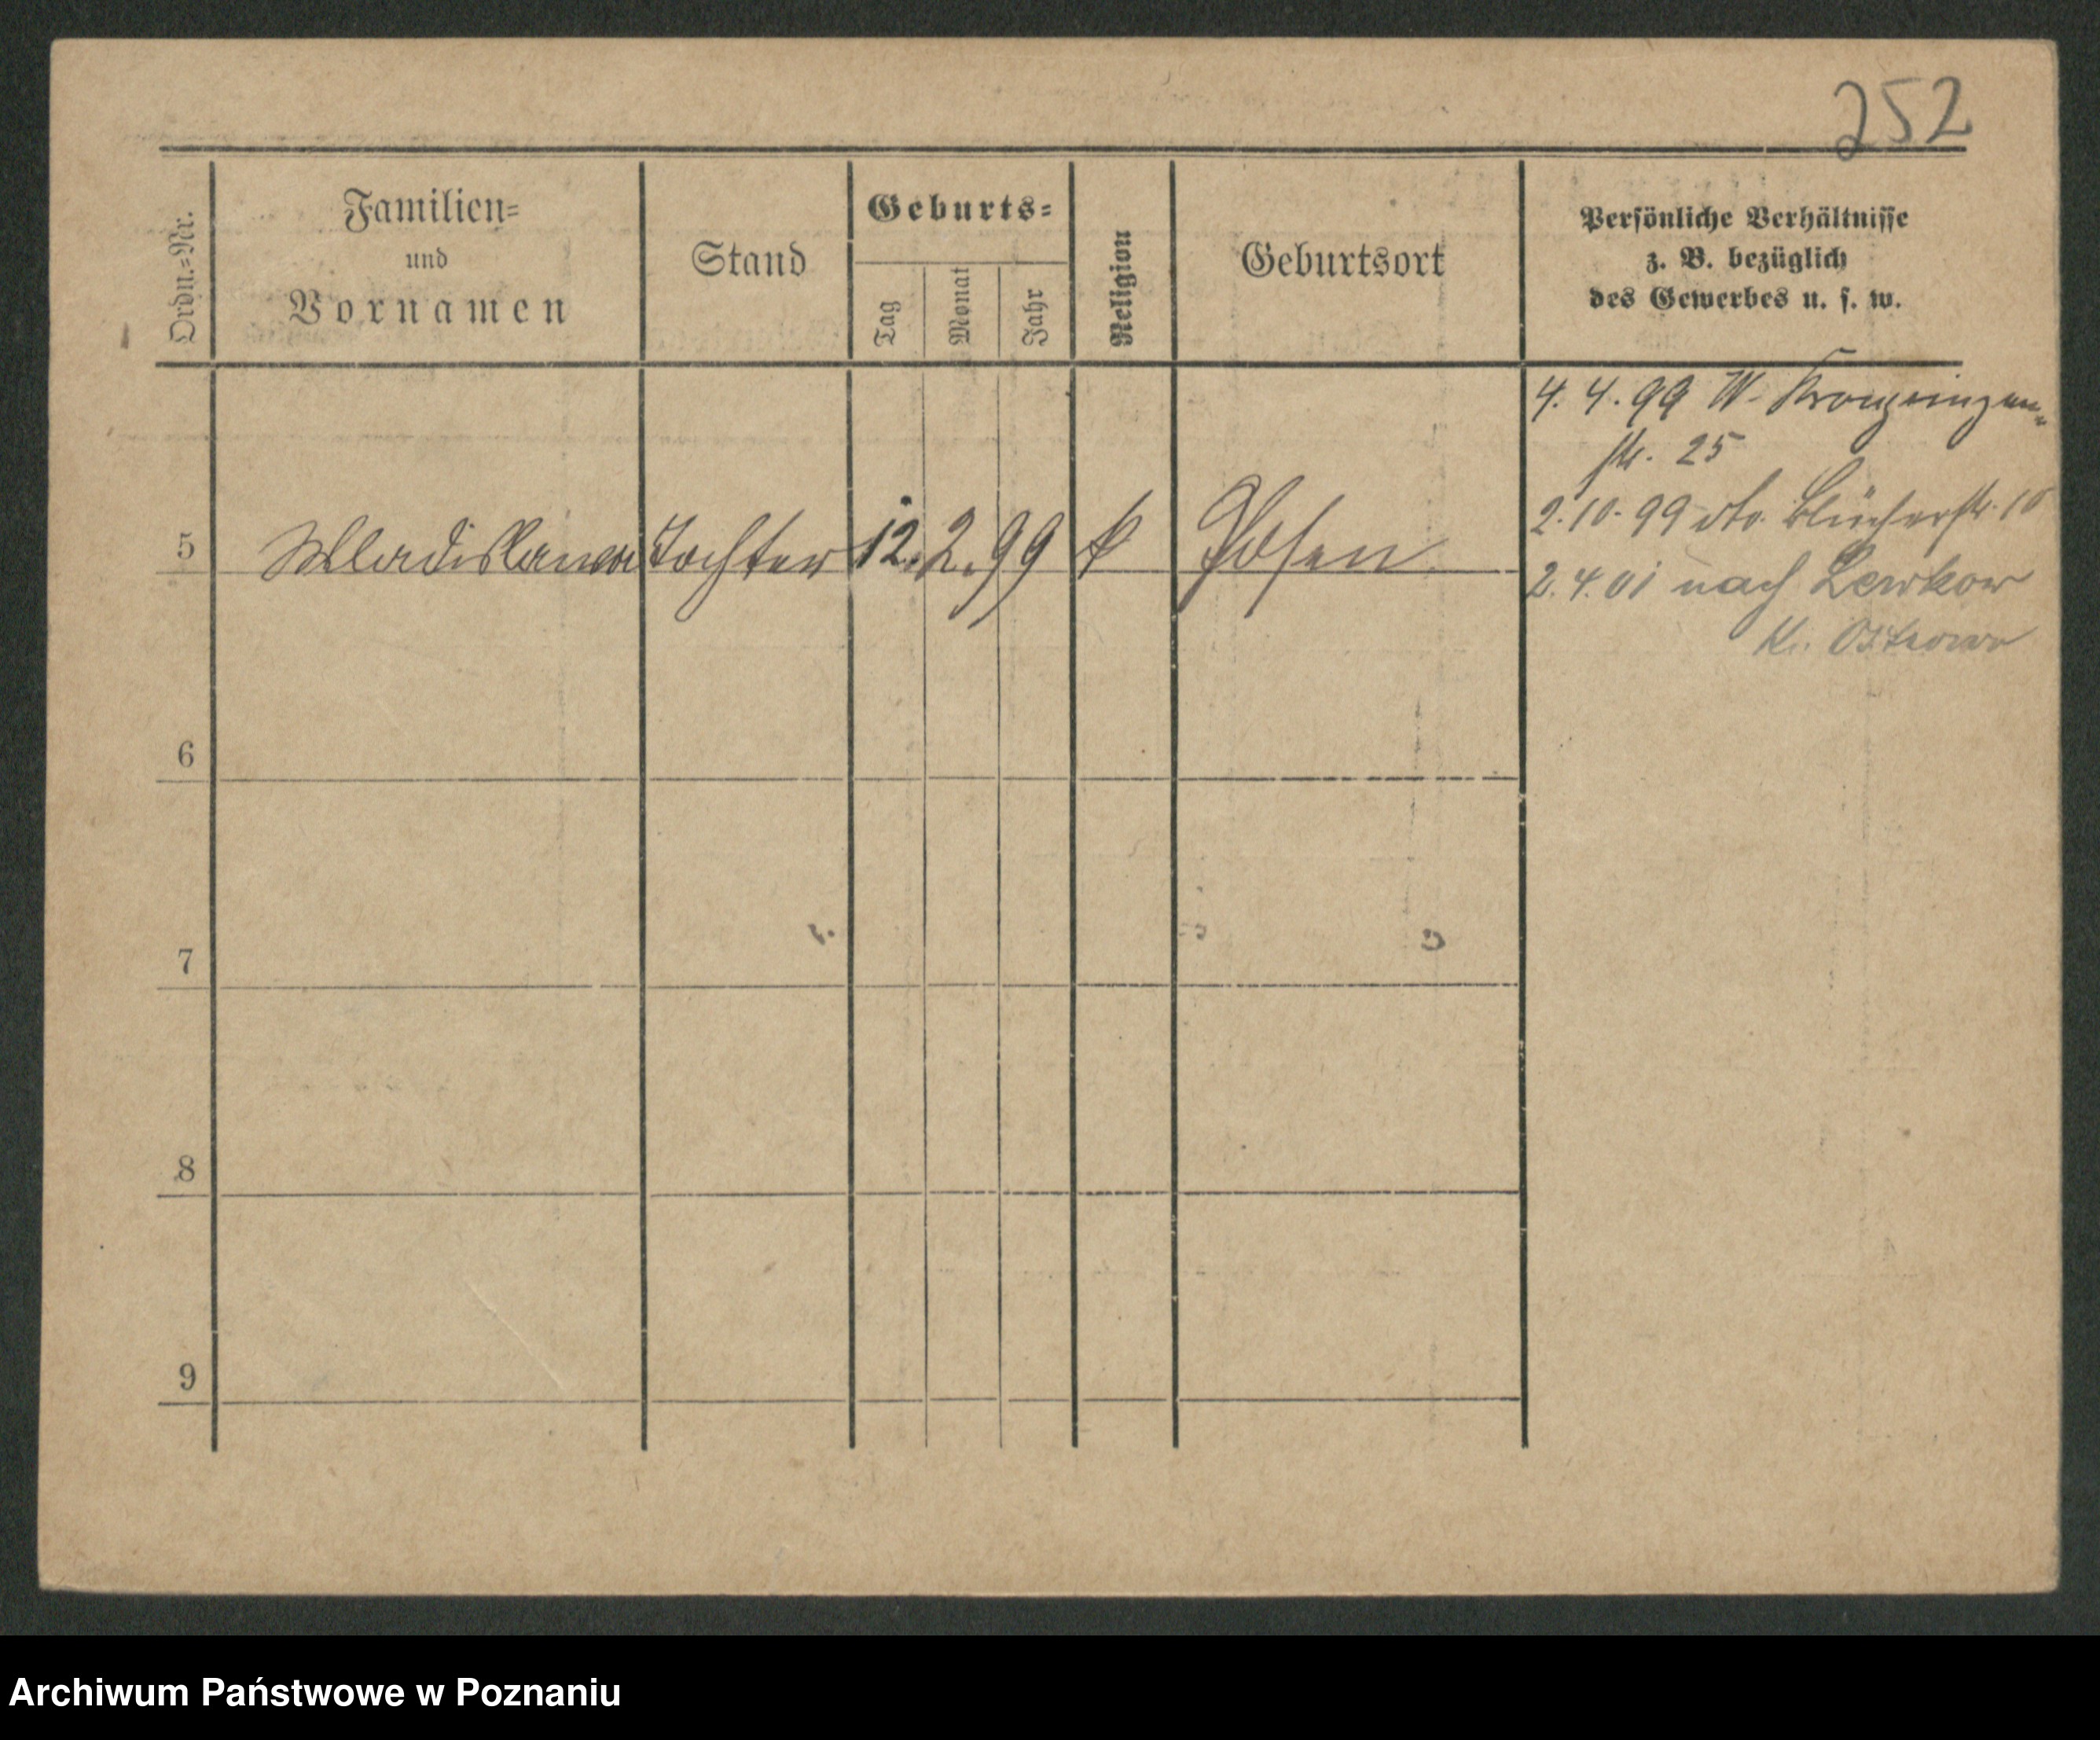 252
Ordn.=Nr.
Familien=
und
Vornamen
Stand
Geburts=
Tag
Monat
Jahr
Religion
Geburtsort
Persönliche Verhältnisse
z. B. bezüglich
des Gewerbes u. s. w.
4. 4. 99 W. Kronprinzen=
str. 25
5 Wladislawa Tochter 12. 2. 99 k Posen
2. 10. 99 dto. Blücherstr. 10
2. 4. 01 nach Lewkow
Kr. Ostrowo
6
7
8
9
Archiwum Państwowe w Poznaniu